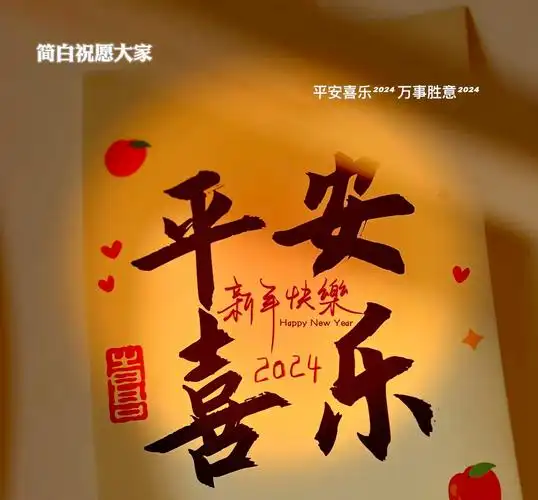 简白祝愿大家
平安喜乐2024 万事胜意2024
平安
新年快樂
Happy New Year
2024
喜乐